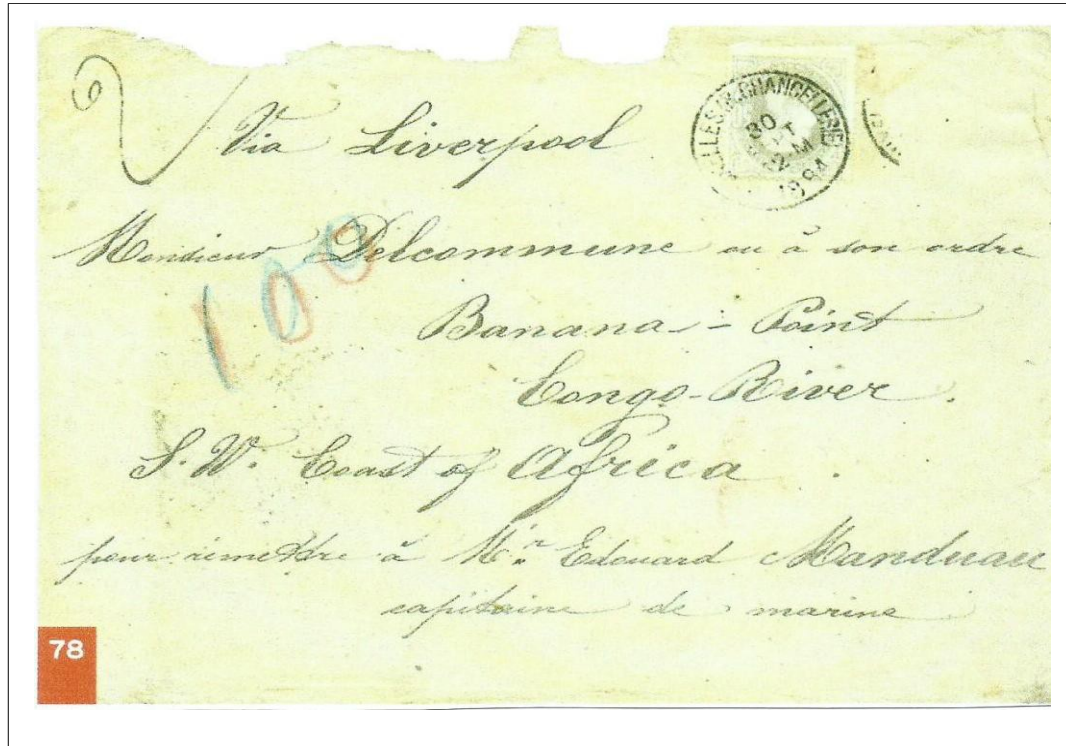 Via Liverpool
Monsieur Delcommune ou à son ordre
100
Banana - Point
Congo-River.
S. W. Coast of Africa.
pour remettre à Mr. Edouard Manduau
capitaine de marine
78